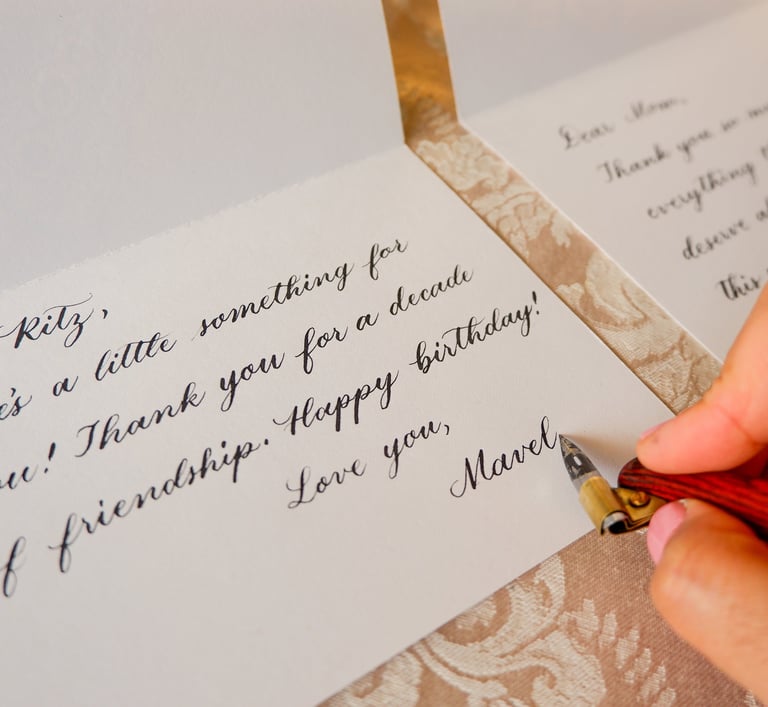 Ritz,
a little something for
ou! Thank you for a decade
f friendship. Happy birthday!
Love you,
Mavel
Dear Mom,
Thank you so
everything
deserve
this